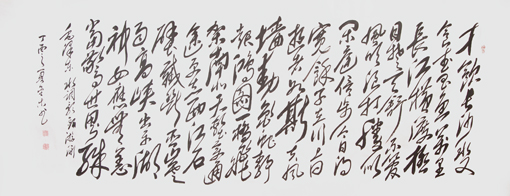 才饮长沙水又
食武昌鱼万里
长江横渡极
目楚天舒不管
风吹浪打胜似
闲庭信步今日得
宽余子在川上曰
逝者如斯夫风
樯动龟蛇静
起宏图一桥飞
架南北天堑变通
途更立西江石
壁截断巫山云
雨高峡出平湖
神女应无恙
当惊世界殊
毛泽东水调歌头游泳